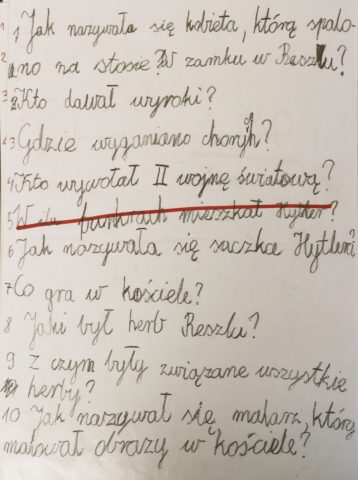 1 Jak nazywała się kobieta, którą spalo-
no na stosie? W zamku w Reszlu?
2 Kto dawał wyroki?
3 Gdzie wyganiano chorych?
4 Kto wywołał II wojnę światową?
5 W ilu bunkrach mieszkał Hytler?
6 Jak nazywała się suczka Hytlera?
7 Co gra w kościele?
8 Jaki był herb Reszlu?
9 Z czym były związane wszystkie
herby?
10 Jak nazywał się malarz, który
malował obrazy w kościele?